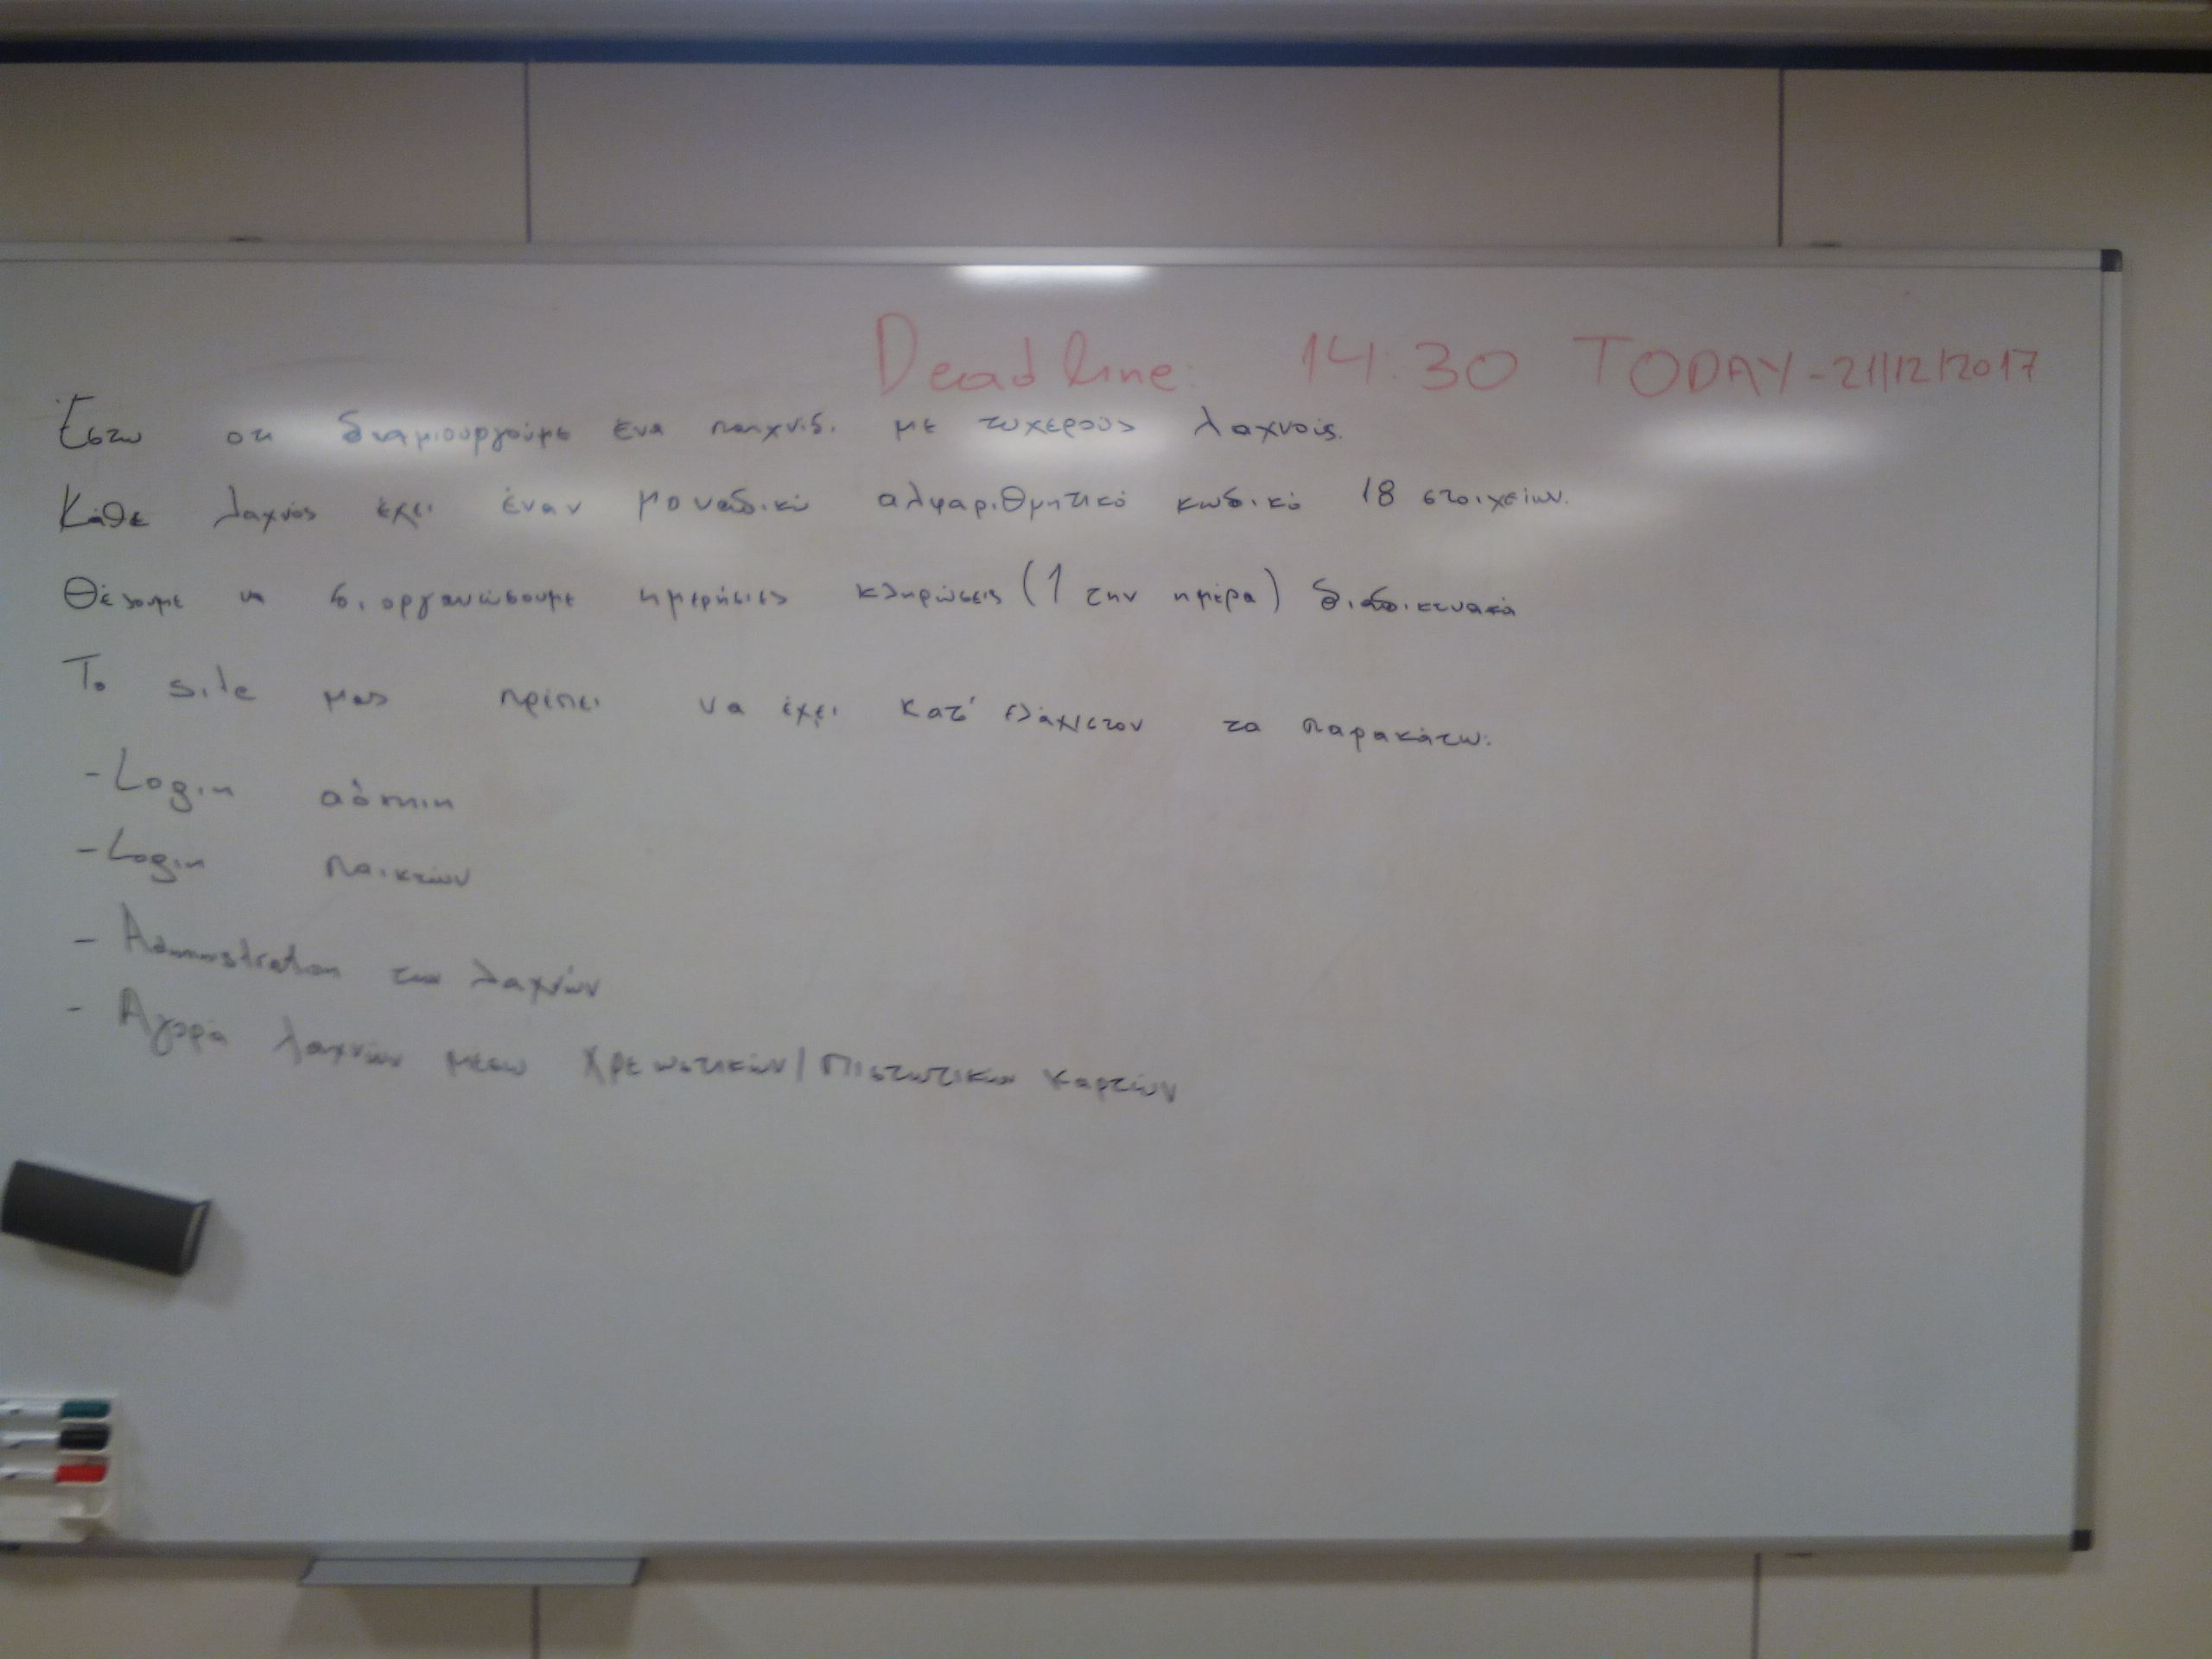 Deadline: 14:30 TODAY - 21/12/2017
Έστω οτι δημιουργούμε ένα παιχνίδι με τυχερούς λαχνούς.
Κάθε λαχνός έχει έναν μοναδικό αλφαριθμητικό κωδικό 18 στοιχείων.
Θέλουμε να διοργανώσουμε ημερήσιες κληρώσεις (1 την ημέρα) διαδικτυακά
Το site μας πρέπει να έχει κατ' ελάχιστον τα παρακάτω:
- Login admin
- Login παικτών
- Administration των λαχνών
- Αγορά λαχνών μέσω χρεωστικών/πιστωτικών καρτών